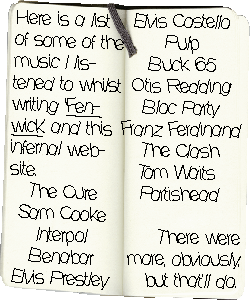 Here is a list
of some of the
music I lis-
tened to whilst
writing 'Fen-
wick' and this
infernal web-
site.
The Cure
Sam Cooke
Interpol
Benabar
Elvis Prestley
Elvis Costello
Pulp
Buck 65
Otis Redding
Bloc Party
Franz Ferdinand
The Clash
Tom Waits
Portishead
There were
more, obviously,
but that'll do.